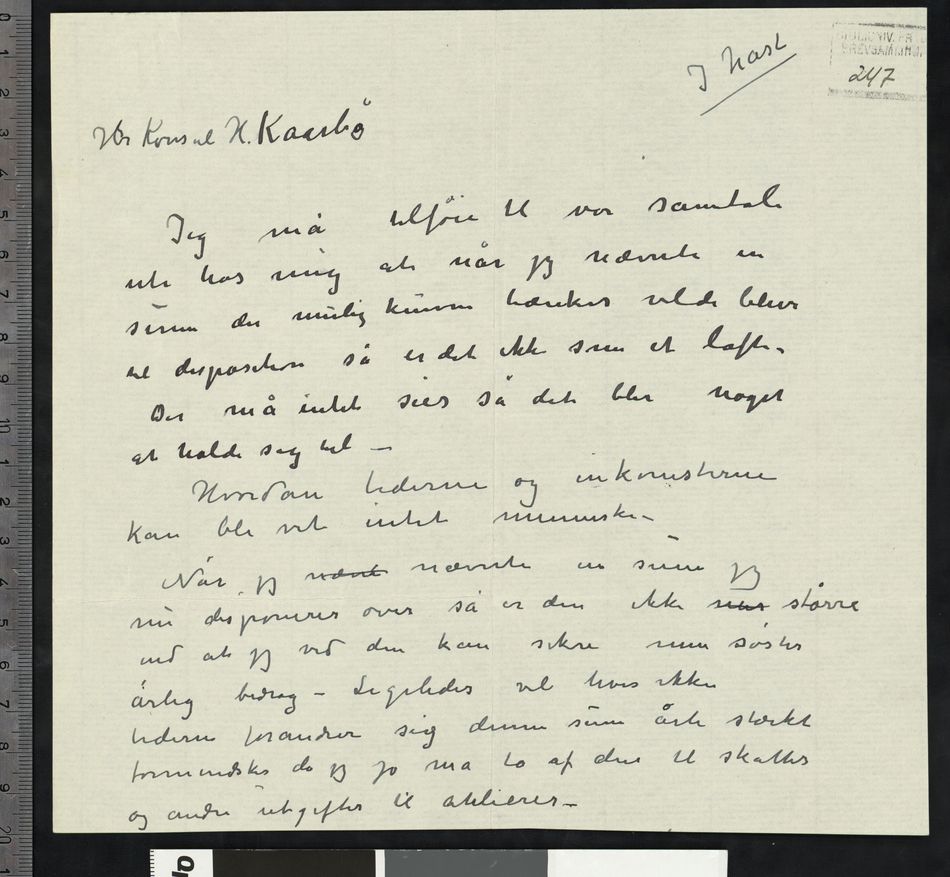 I Hast
247
Hr Konsul H. Kaarbø
Jeg må tilføie til vor samtale
ute hos mig at når jeg nævnte en
sum der mulig kunne tænkes vilde blive
til disposition så er det ikke som et løfte.
Der må intet sies så det blir noget
at holde sig til –
Hvordan tiderne og inkomsterne
kan bli vet intet menneske –
Når jeg nævnte nævnte en sum jeg
nu disponerer over så er den ikke større
end at jeg ved den kan sikre min søster
årlig bidrag – Ligeledes vil hvis ikke
tiderne forandrer sig denne sum årlig stærkt
formindskes da jeg jo må ta af den til skatter
og andre utgifter til atelierer –